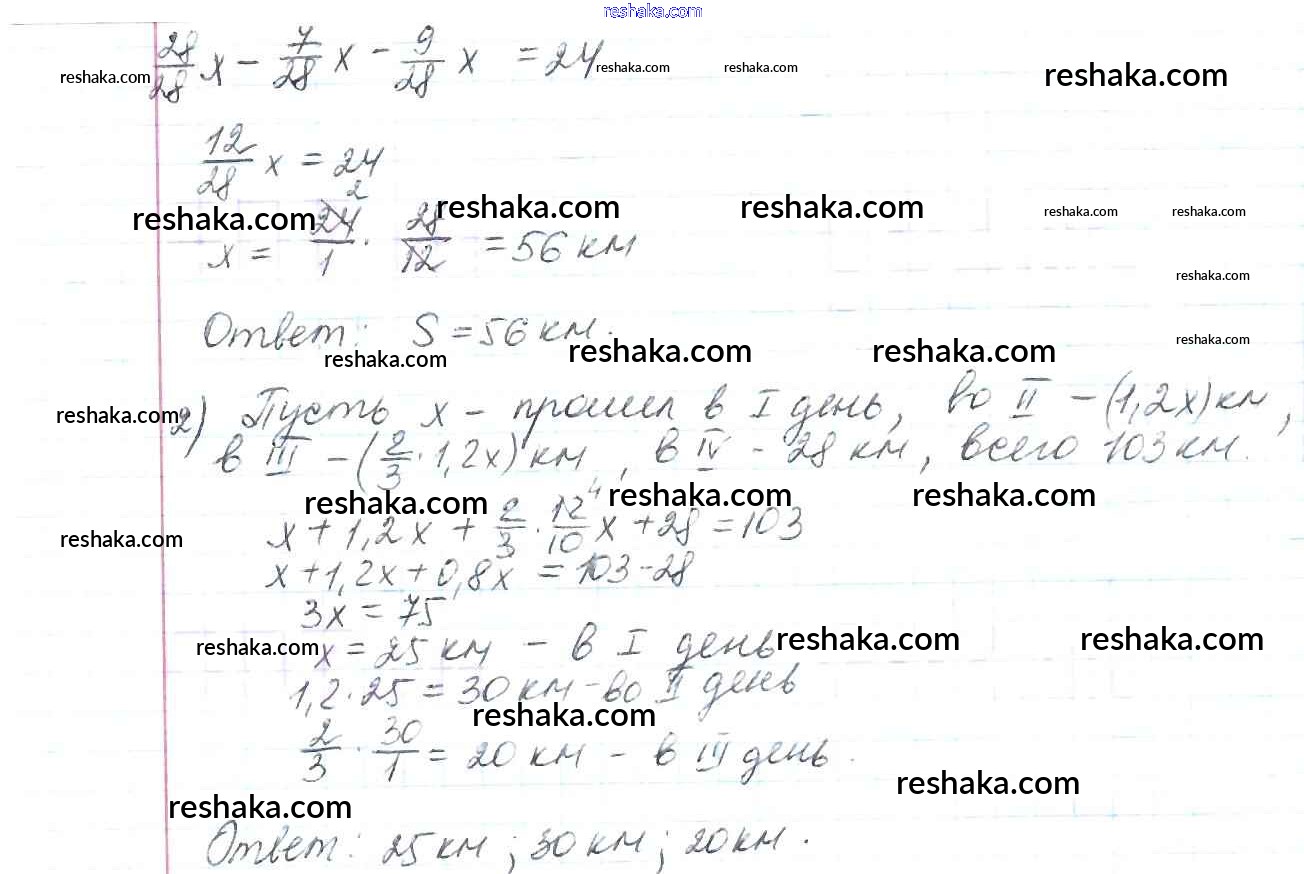 reshaka.com
28/28 x - 7/28 x - 9/28 x = 24
reshaka.com reshaka.com reshaka.com reshaka.com
12/28 x = 24
reshaka.com reshaka.com reshaka.com reshaka.com reshaka.com
x = 24²/1 · 28/12 = 56 км
reshaka.com
Ответ: S = 56 км.
reshaka.com reshaka.com reshaka.com reshaka.com
2) Пусть x - прошел в I день, во II - (1,2x) км,
reshaka.com
в III - (2/3 · 1,2x) км, в IV - 28 км, всего 103 км.
reshaka.com reshaka.com reshaka.com
x + 1,2x + 2/3 · 12⁴/10 x + 28 = 103
reshaka.com
x + 1,2x + 0,8x = 103 - 28
3x = 75
x = 25 км - в I день
reshaka.com reshaka.com reshaka.com
1,2 · 25 = 30 км - во II день
reshaka.com
2/3 · 30/1 = 20 км - в III день.
reshaka.com
reshaka.com
Ответ: 25 км; 30 км; 20 км.